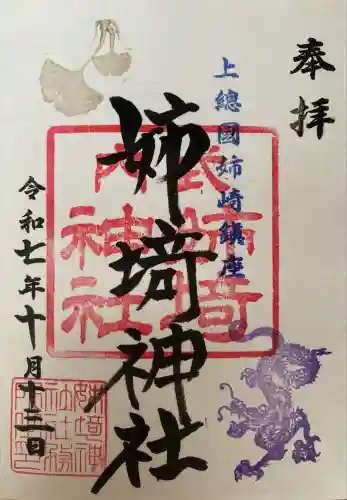 奉拝
上總國姉崎鎮座
姉埼神社
令和七年十月十三日